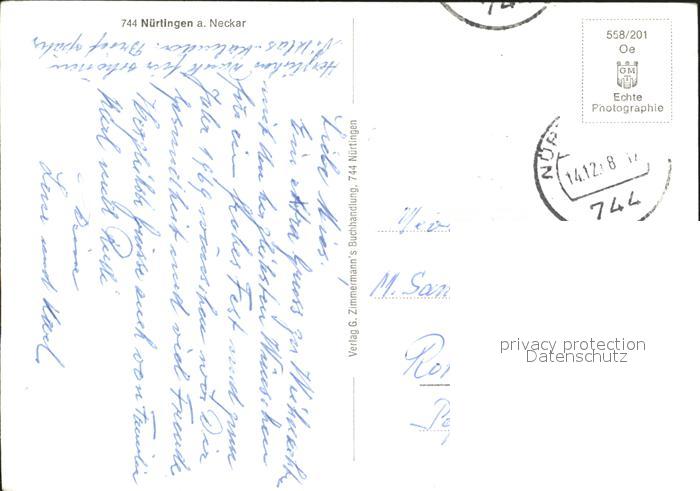 744 Nürtingen a. Neckar
Herzlichen Dank für schönen
Niklas-Kalender. Brief später
Liebe
Ein extra Gruss zu Weihnacht
mit den herzlichsten Wünschen
für ein frohes Fest und zum
Jahr 1969 wünschen wir Dir
Gesundheit und viel Freude
Herzliche Grüsse auch von Familie
Karl und
Deine
und Karl.
Verlag G. Zimmermann's Buchhandlung, 744 Nürtingen
558/201
Oe
GM
Echte
Photographie
NÜR
14.12. 8
744
M. San
Ro
privacy protection
Datenschutz